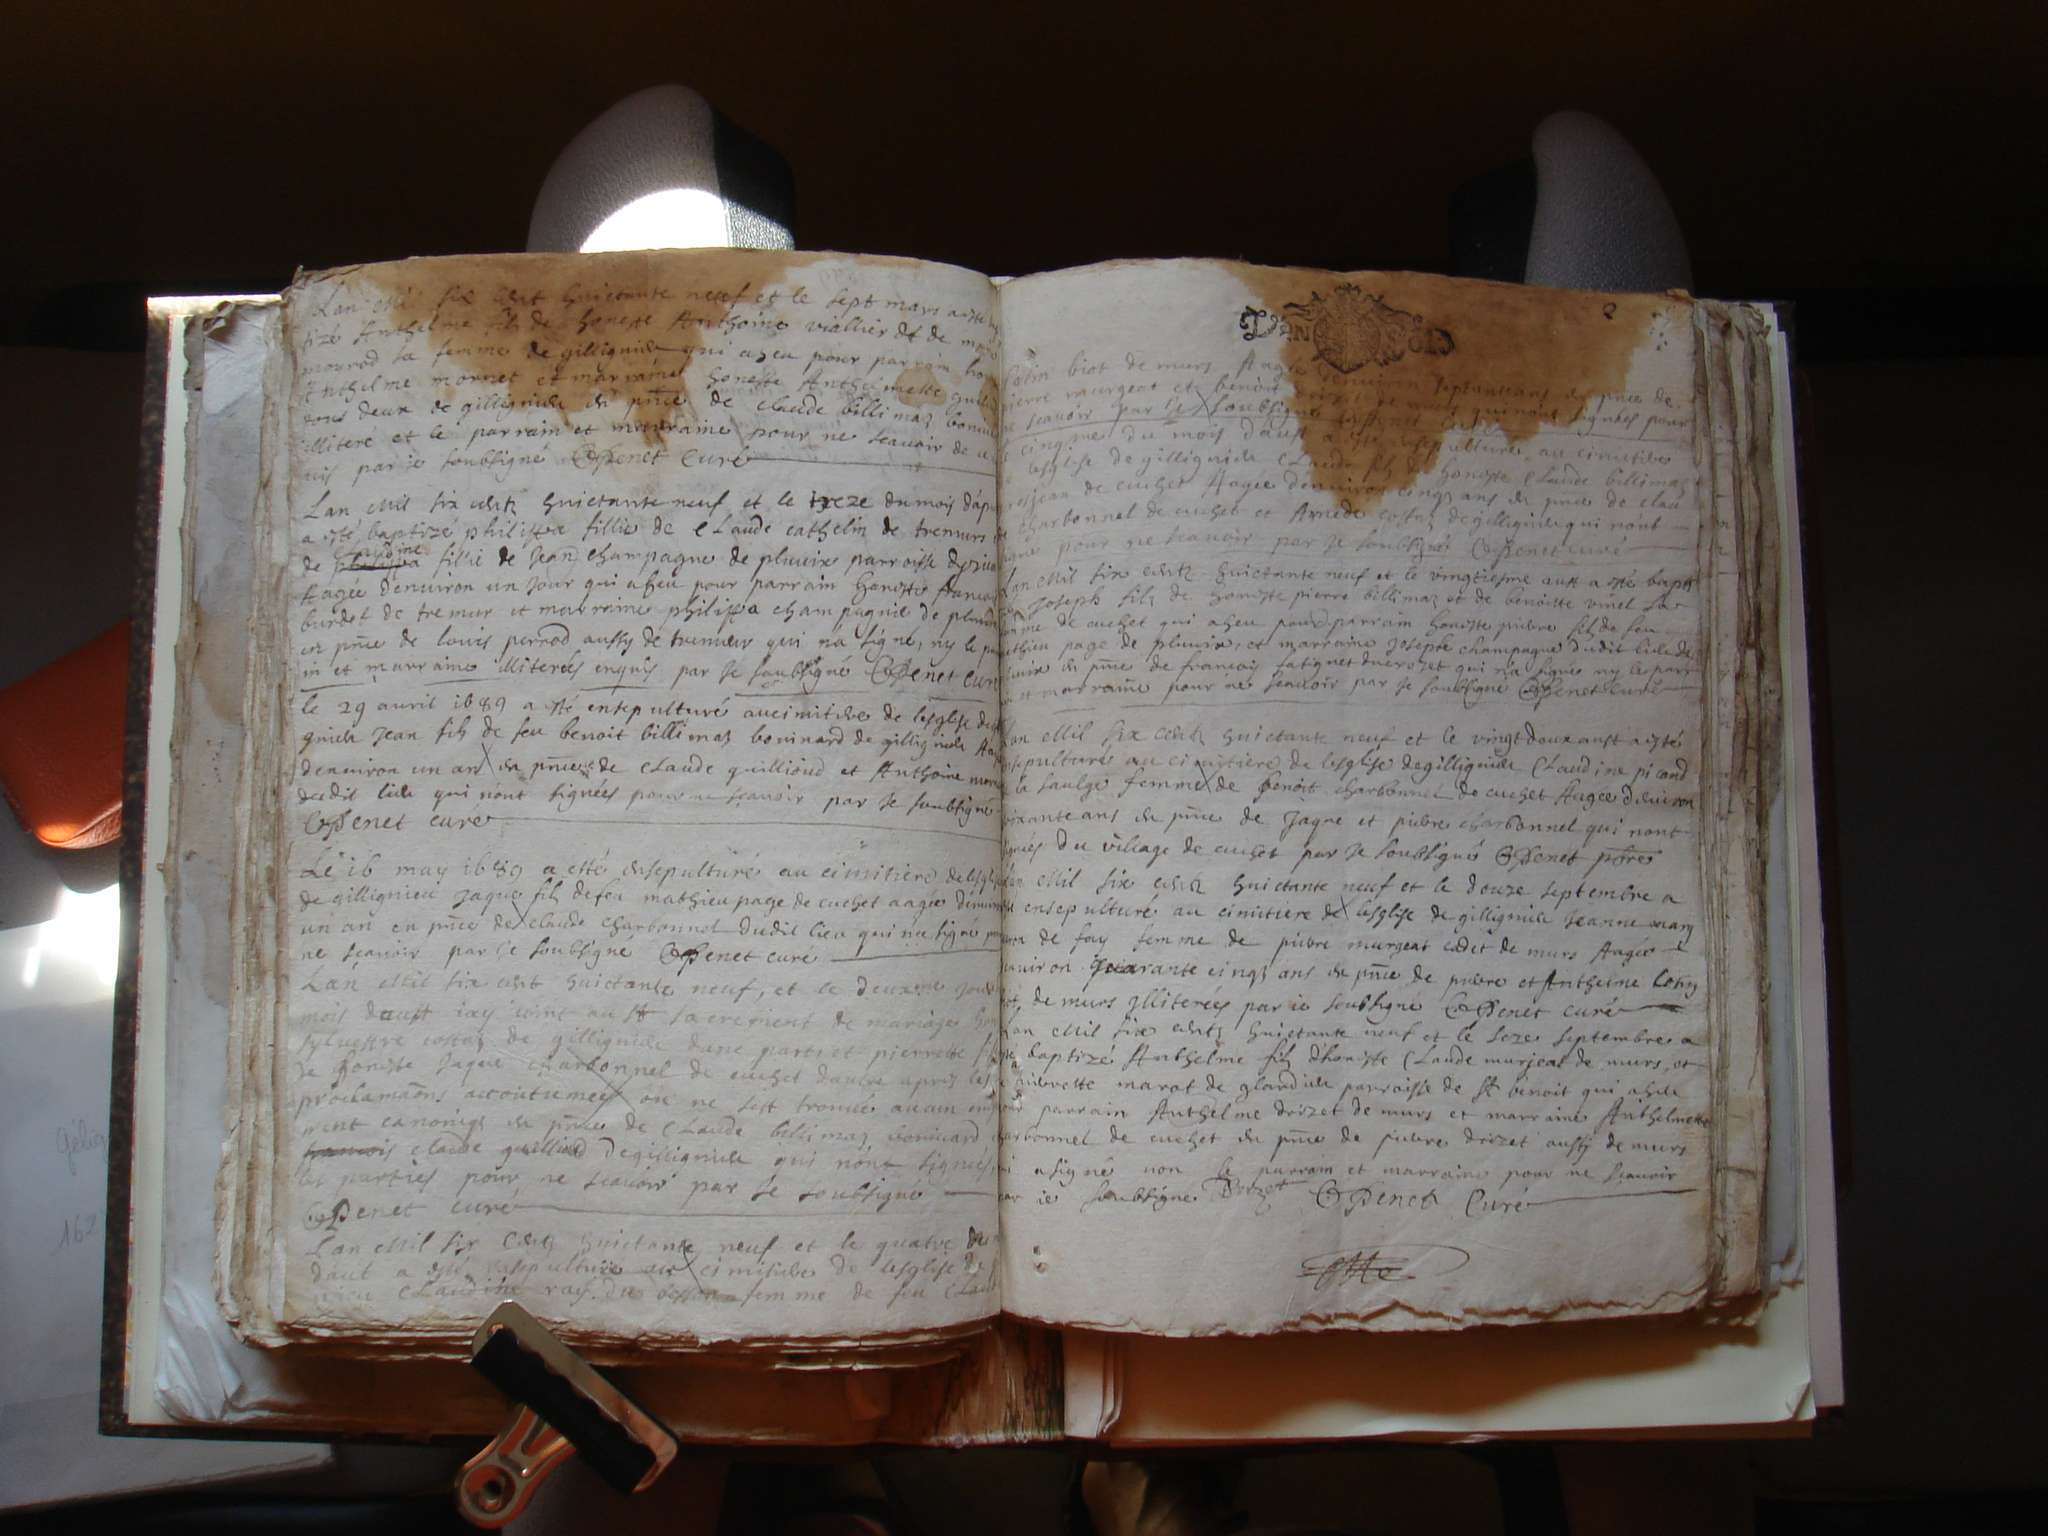 Lan Mil six cents huictante neuf et le sept mars a esté bap
tizé Anthelme fils de honeste Anthoine viallier et de
mornod sa femme de gillignieu qui a heu pour parrain hon
Anthelme mornet et marraine honeste Anthelmette
tous deux de gillignieu en pnce de claude billimaz
illiteré et le parrain et marraine pour ne scavoir de
par ie soubsigné CPenet Curé
Lan Mil six cents huictante neuf et le treze du mois dap
a esté baptizé philippa fillie de Claude cathelin de tremurs
de philippa Claudine fillie de Jean champagne de pluvix parroisse
Aagée denviron un jour qui a heu pour parrain honeste francois
burdet de tremur et marraine philippa champagnie de pluvix
en pnce de louis pernod aussy de tremeur qui na signé, ny le par
in et marraine illiterées enquis par Je soubsigné CPenet curé
le 29 avril 1689 a esté ensepulturé au cimitiere de lesglise de
gnieu Jean fils de feu benoit billimaz bouinard de gillignieu Aag
denviron un an en pnce de Claude guillioud et Anthoine mor
dudit lieu qui n'ont signées pour ne scavoir par Je soubsigné
CPenet curé
Le 16 may 1689 a esté ensepulturé au cimitiere de lesglise
de gillignieu Jaque fils de feu mathieu page de cuchet aagée denviron
un an en pnce de claude charbonnel dudit lieu qui na signé pour
ne scavoir par Je soubsigné CPenet curé
Lan Mil six cents huictante neuf, et le deuxme jour
mois daust iay joint au St sacrement de mariage hon
sylvestre costaz de gillignieu dune part et pierrette
de honeste Jaque charbonnel de cuchet daultre apres les
proclamaons accoutumees ou ne sest trouvée aucun emp
ment canonique en pnce de Claude billimaz bouinard
francois claude guilliod de gillignieu qui n'ont signées
les parties pour ne scavoir par Je soubsigné
CPenet curé
Lan Mil six cents huictante neuf et le quatre
daut a esté ensepulturé au cimitiere de lesglise de
nieu Claudine du femme de feu Claud
2
biot de murs Aagé denviron septante ans en pnce de
pierre murgeat et benoit drizet de murs qui nont signées pour
ne scavoir par Je soubsigné CPenet curé
cinqme du mois daust a esté ensepulturé au cimitiere
lesglise de gillignieu Claude fils de honeste Claude billimaz
Jean de cuchet Aagée denviron cinq ans en pnce de clau
charbonnel de cuchet et Amede costaz de gillignieu qui nont
signé pour ne scavoir par Je soubsigné CPenet curé
Lan Mil six cents huictante neuf et le vingtiesme aust a esté bapt
Joseph fils de honeste pierre billimaz et de benoitte vinel sa
femme de cuchet qui a heu pour parrain honeste pierre fils de feu
mathieu page de pluvix, et marraine Josepte champagne dudit lieu de
pluvix en pnce de francois fatignet qui n'a signée ny le parr
et marraine pour ne scavoir par Je soubsigné CPenet curé
Lan Mil six cents huictante neuf et le vingt deux aust a esté
ensepulturé au cimitiere de lesglise de gillignieu Claudine picond
la saulge femme de benoit charbonnel de cuchet Aagée denviron
soixante ans en pnce de Jaque et pierre charbonnel qui nont
signés du village de cuchet par Je soubsigné CPenet pbre
Lan Mil six cents huictante neuf et le douze septembre a
esté ensepulturé au cimitiere de lesglise de gillignieu Jeanne
de fay femme de pierre murgeat cadet de murs Aagée
denviron quarante cinq ans en pnce de pierre et Anthelme
de murs illiterées par ie soubsigné CPenet curé
Lan Mil six cents huictante neuf et le seze septembre a
esté baptizé Anthelme fils d'honeste Claude murjeat de murs, et
pierrette marot de glandieu parroisse de St benoit qui a heu
pour parrain Anthelme drizet de murs et marraine Anthelmette
charbonnel de cuchet en pnce de pierre drizet aussy de murs
qui a signé non le parrain et marraine pour ne scavoir
par ie soubsigné Drizet CPenet Curé